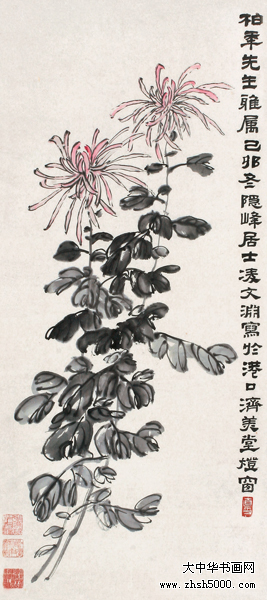 柏年先生雅属己卯冬隐峰居士凌文渊写於港口濟美堂燈窗
大中华书画网
www.zhsh5000.com